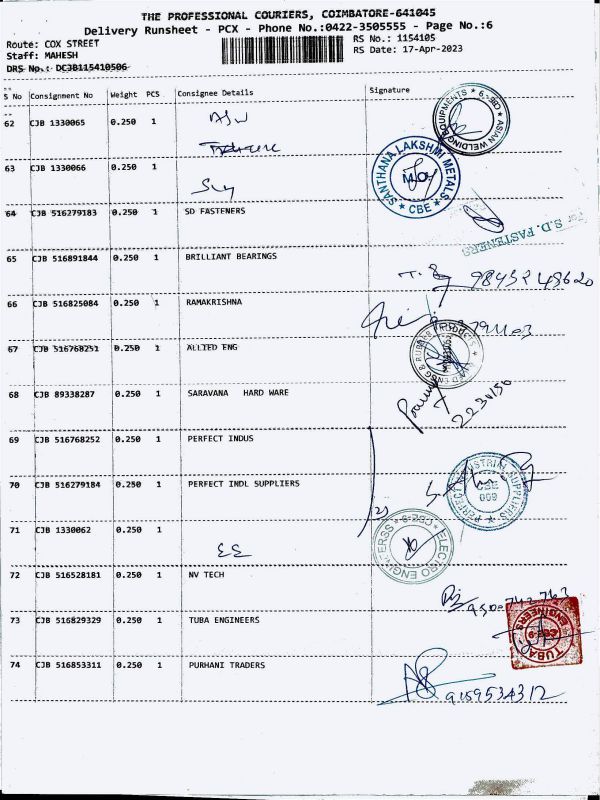 THE PROFESSIONAL COURIERS, COIMBATORE-641045
Delivery Runsheet - PCX - Phone No.:0422-3505555 - Page No.:6
Route: COX STREET RS No.: 1154105
Staff: MAHESH RS Date: 17-Apr-2023
DRS No.: DCJB115410506
S No Consignment No Weight PCS Consignee Details Signature
62 CJB 1330065 0.250 1
ASIAN WELDING EQUIPMENTS * CBE-9 *
63 CJB 1330066 0.250 1
SANTHANA LAKSHMI METALS * CBE *
64 CJB 516279183 0.250 1 SD FASTENERS
For S.D. FASTENERS
65 CJB 516891844 0.250 1 BRILLIANT BEARINGS
66 CJB 516825084 0.250 1 RAMAKRISHNA
67 CJB 516768251 0.250 1 ALLIED ENG
68 CJB 89338287 0.250 1 SARAVANA HARD WARE
69 CJB 516768252 0.250 1 PERFECT INDUS
70 CJB 516279184 0.250 1 PERFECT INDL SUPPLIERS
PERFECT INDUSTRIAL SUPPLIERS CBE 009
71 CJB 1330062 0.250 1
EE
72 CJB 516528181 0.250 1 NV TECH
73 CJB 516829329 0.250 1 TUBA ENGINEERS
TUBA ENGINEERS CBE-9
74 CJB 516853311 0.250 1 PURHANI TRADERS
9159534312